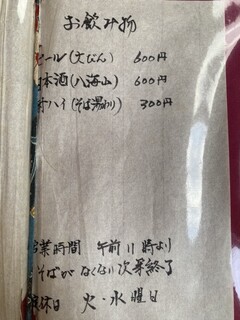 お飲み物
ビール(大びん) 600円
日本酒(八海山) 600円
酎ハイ(そば湯割) 300円
営業時間 午前11時より
そばがなくなり次第終了
定休日 火・水曜日